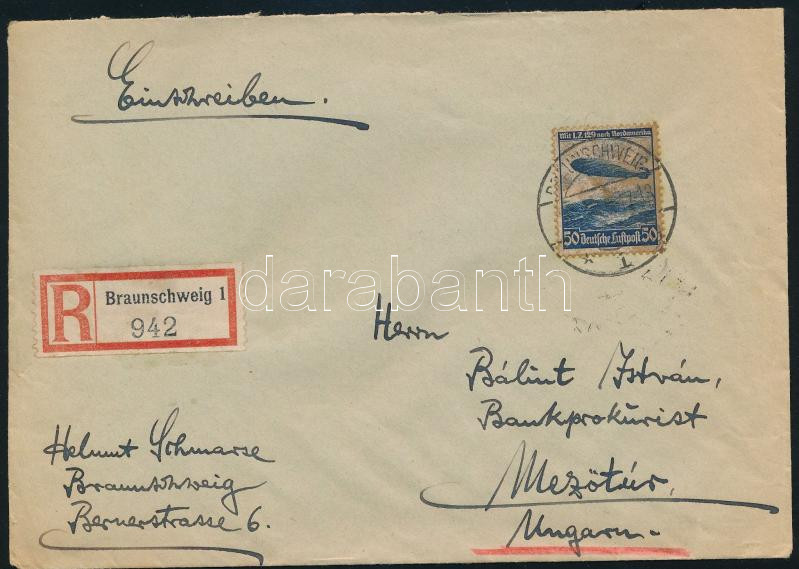 Einschreiben.
Mit L.Z. 129 nach Nordamerika
BRAUNSCHWEIG
50 Deutsche Luftpost 50
* 1
R Braunschweig 1
942
darabanth
Herrn
Bálint István,
Bankprokurist
Mezötúr,
Ungarn.-
Helmut Schmarse
Braunschweig
Bernerstrasse 6.